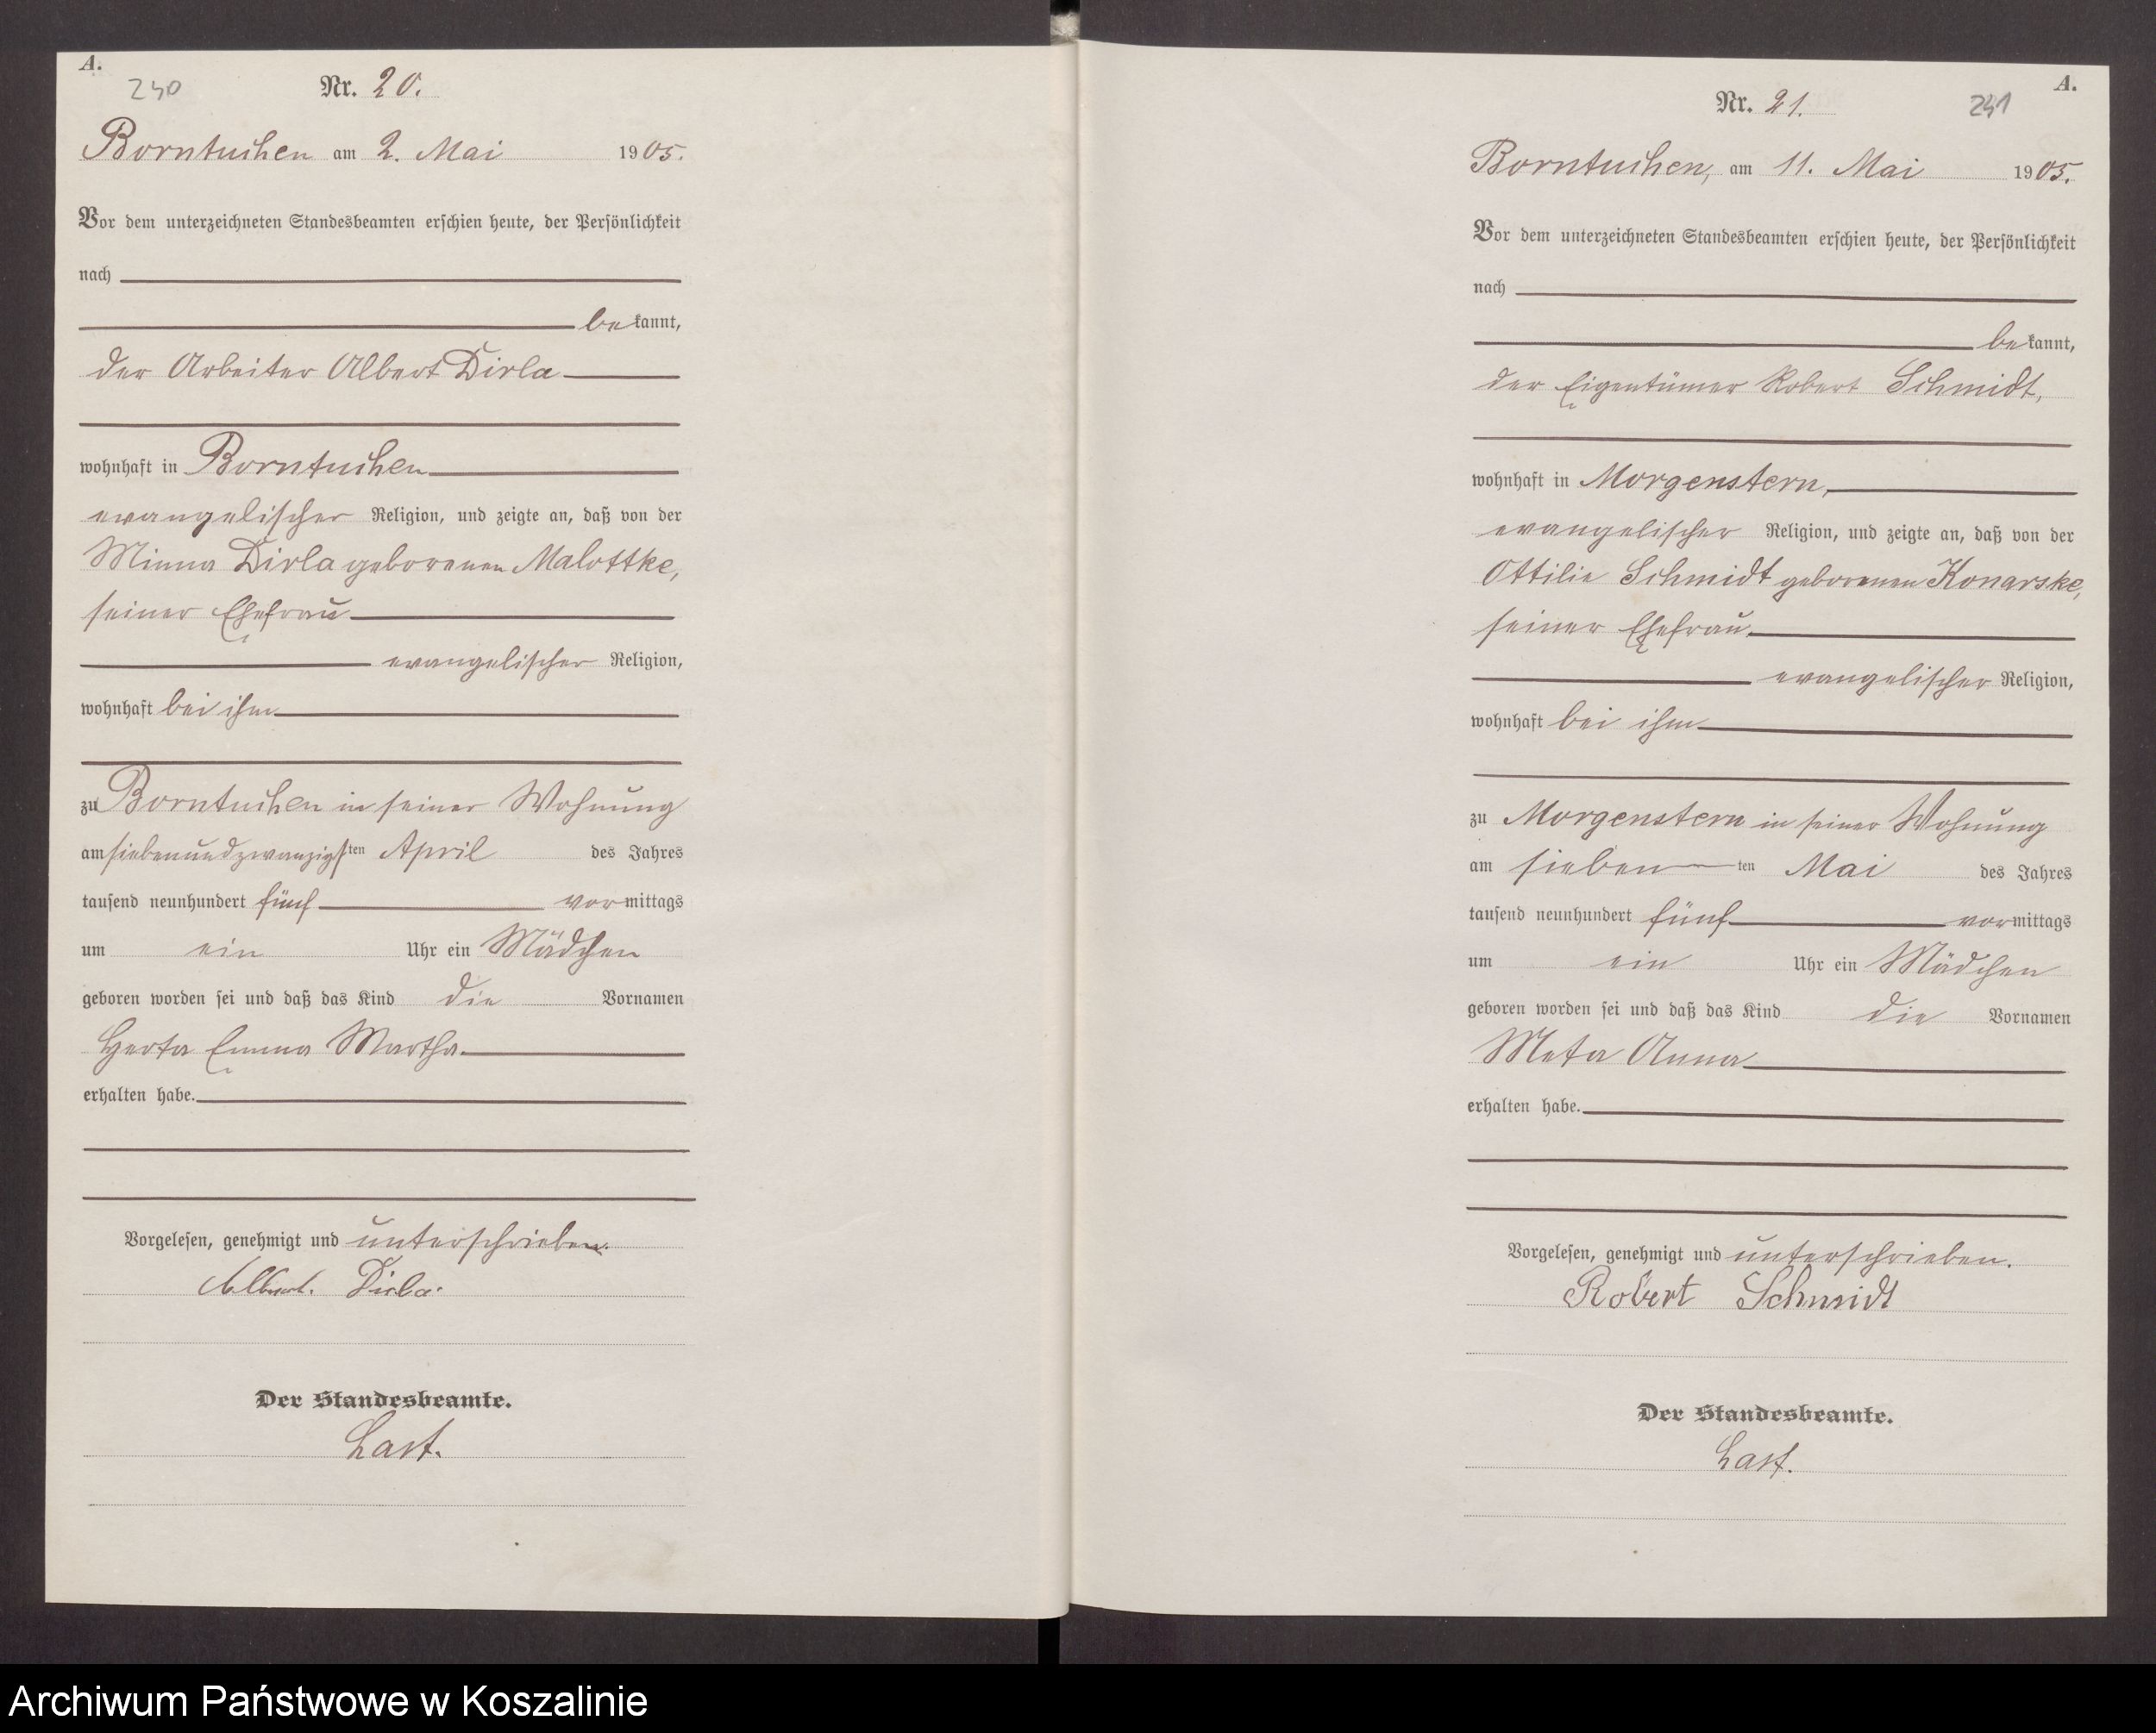 A.
240
Nr. 20.
Borntuchen am 2. Mai 1905.
Vor dem unterzeichneten Standesbeamten erschien heute, der Persönlichkeit
nach
bekannt,
der Arbeiter Albert Dirla
wohnhaft in Borntuchen
evangelischer Religion, und zeigte an, daß von der
Minna Dirla geborenen Malottke,
seiner Ehefrau
evangelischer Religion,
wohnhaft bei ihm
zu Borntuchen in seiner Wohnung
am siebenundzwanzigsten April des Jahres
tausend neunhundert fünf vormittags
um ein Uhr ein Mädchen
geboren worden sei und daß das Kind die Vornamen
Herta Emma Martha
erhalten habe.
Vorgelesen, genehmigt und unterschrieben.
Albert. Dirla.
Der Standesbeamte.
Last.
A.
241
Nr. 21.
Borntuchen, am 11. Mai 1905.
Vor dem unterzeichneten Standesbeamten erschien heute, der Persönlichkeit
nach
bekannt,
der Eigentümer Robert Schmidt,
wohnhaft in Morgenstern,
evangelischer Religion, und zeigte an, daß von der
Ottilie Schmidt geborenen Konarske,
seiner Ehefrau,
evangelischer Religion,
wohnhaft bei ihm
zu Morgenstern in seiner Wohnung
am siebenten Mai des Jahres
tausend neunhundert fünf vormittags
um ein Uhr ein Mädchen
geboren worden sei und daß das Kind die Vornamen
Meta Anna
erhalten habe.
Vorgelesen, genehmigt und unterschrieben.
Robert Schmidt
Der Standesbeamte.
Last.
Archiwum Państwowe w Koszalinie